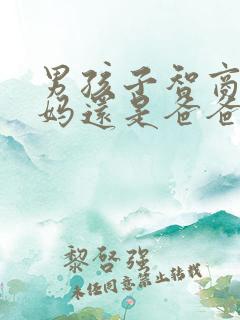 男孩子智商
妈還是爸爸
黎啓强
未经同意禁止转载